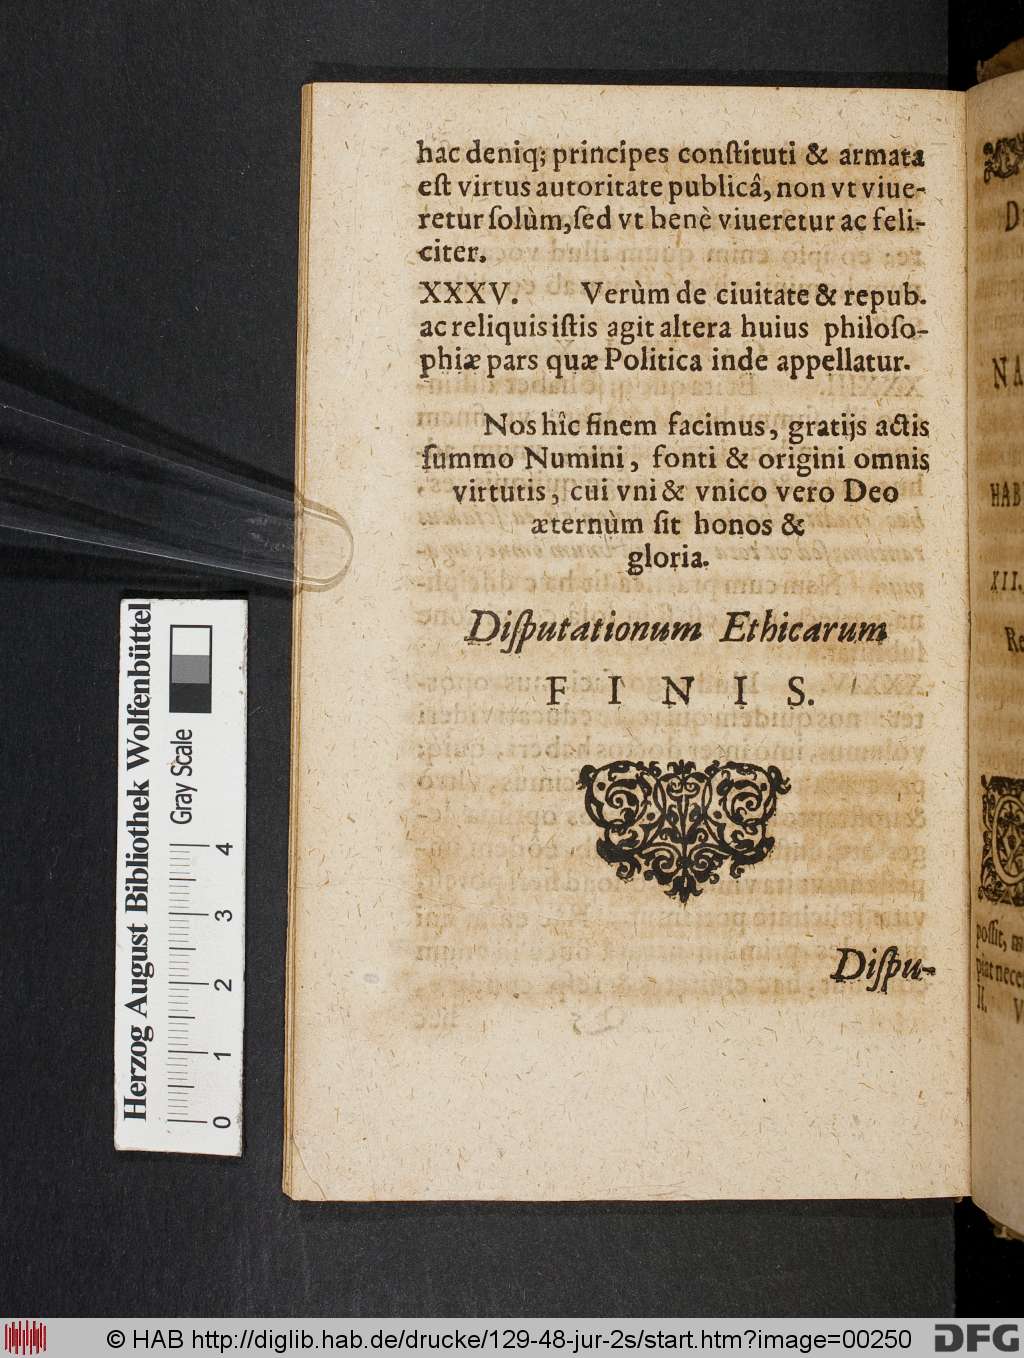 hac deniq; principes conſtituti & armata
eſt virtus autoritate publicâ, non vt viue-
retur ſolùm, ſed vt benè viueretur ac feli-
citer.
XXXV. Verùm de ciuitate & repub.
ac reliquis iſtis agit altera huius philoſo-
phiæ pars quæ Politica inde appellatur.
Nos hîc finem facimus, gratijs actis
ſummo Numini, fonti & origini omnis
virtutis, cui vni & vnico vero Deo
æternùm ſit honos &
gloria.
Diſputationum Ethicarum
FINIS.
Diſpu-
NA
HAB
XII.
Re
poſſit, m
piat nece
II. V
Herzog August Bibliothek Wolfenbüttel
Gray Scale
0 1 2 3 4
© HAB http://diglib.hab.de/drucke/129-48-jur-2s/start.htm?image=00250
DFG